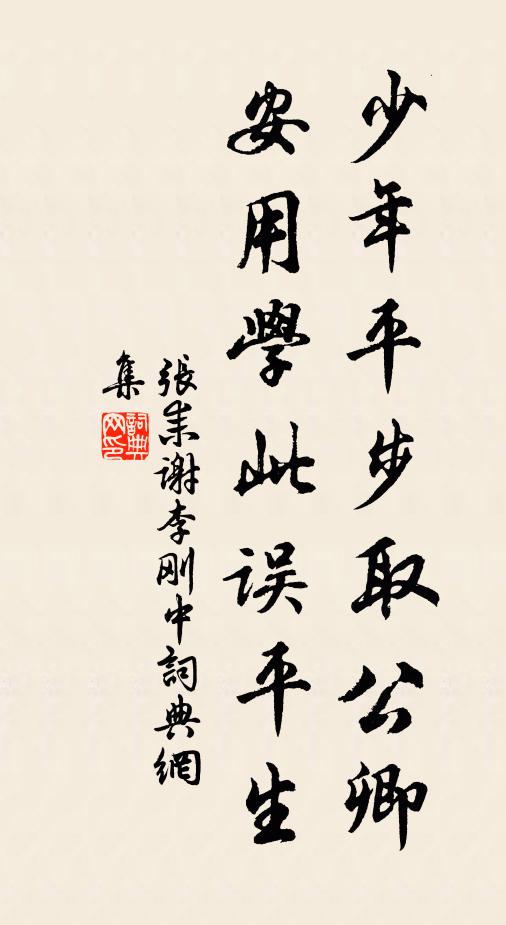 少年平步取公卿
安用學此误平生
張耒谢李刚中詞典網
集
詞典
网印